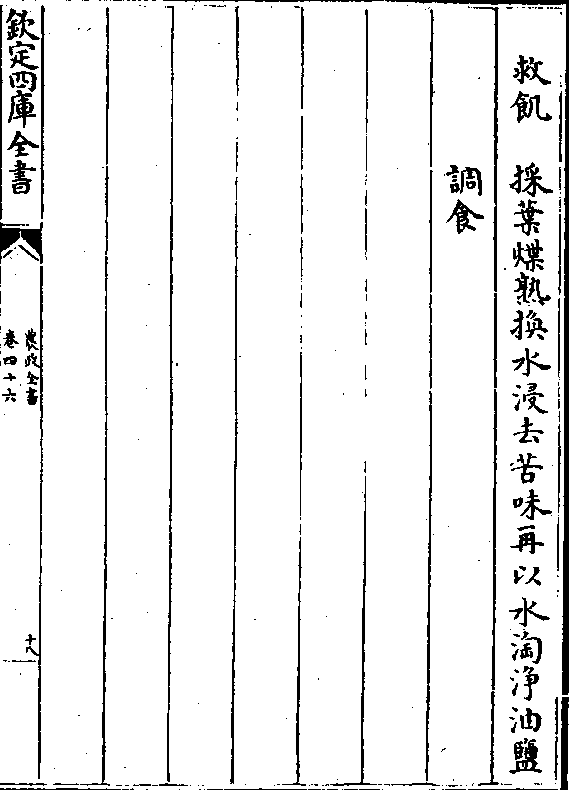 救飢　採葉煠熟換水浸去苦味再以水淘淨油鹽
調食
欽定四庫全書
農政全書
卷四十六
十八